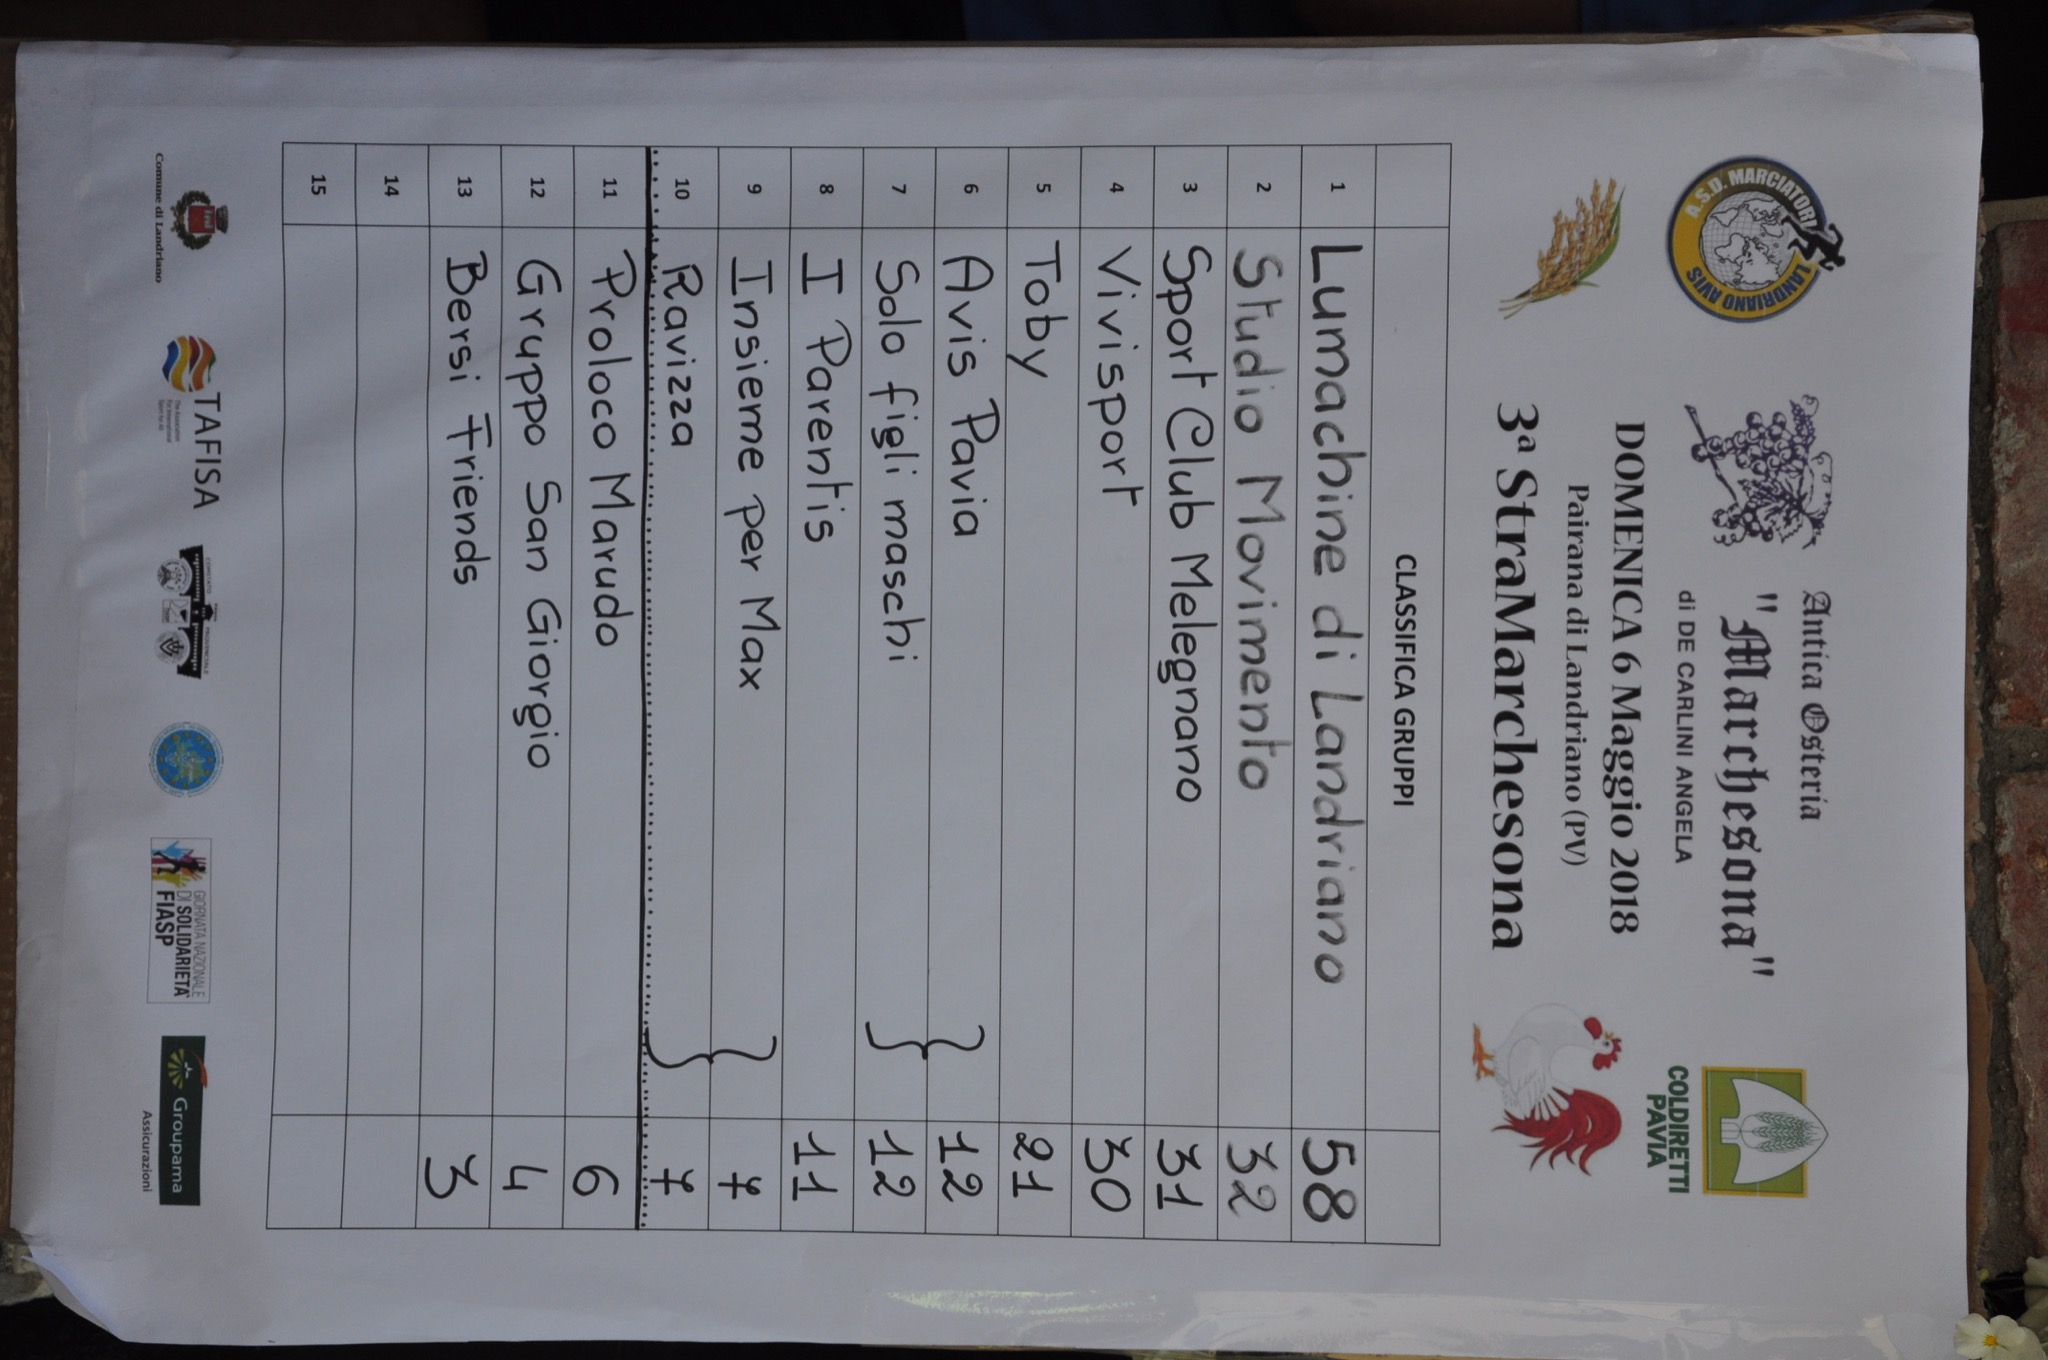 A.S.D. MARCIATORI
LANDRIANO AVIS
Antica Osteria
"Marchesona"
di DE CARLINI ANGELA
COLDIRETTI
PAVIA
DOMENICA 6 Maggio 2018
Pairana di Landriano (PV)
3ª StraMarchesona
CLASSIFICA GRUPPI
1 Lumachine di Landriano 58
2 Studio Movimento 32
3 Sport Club Melegnano 31
4 Vivisport 30
5 Toby 21
6 Avis Pavia } 12
7 Solo figli maschi 12
8 I Parentis 11
9 Insieme per Max } 7
10 Ravizza 7
11 Proloco Marudo 6
12 Gruppo San Giorgio 4
13 Bersi Friends 3
14
15
Comune di Landriano
TAFISA
The Association
For International
Sport for All
COMITATO PROVINCIALE
GIORNATA NAZIONALE
DI SOLIDARIETA'
FIASP
Groupama
Assicurazioni